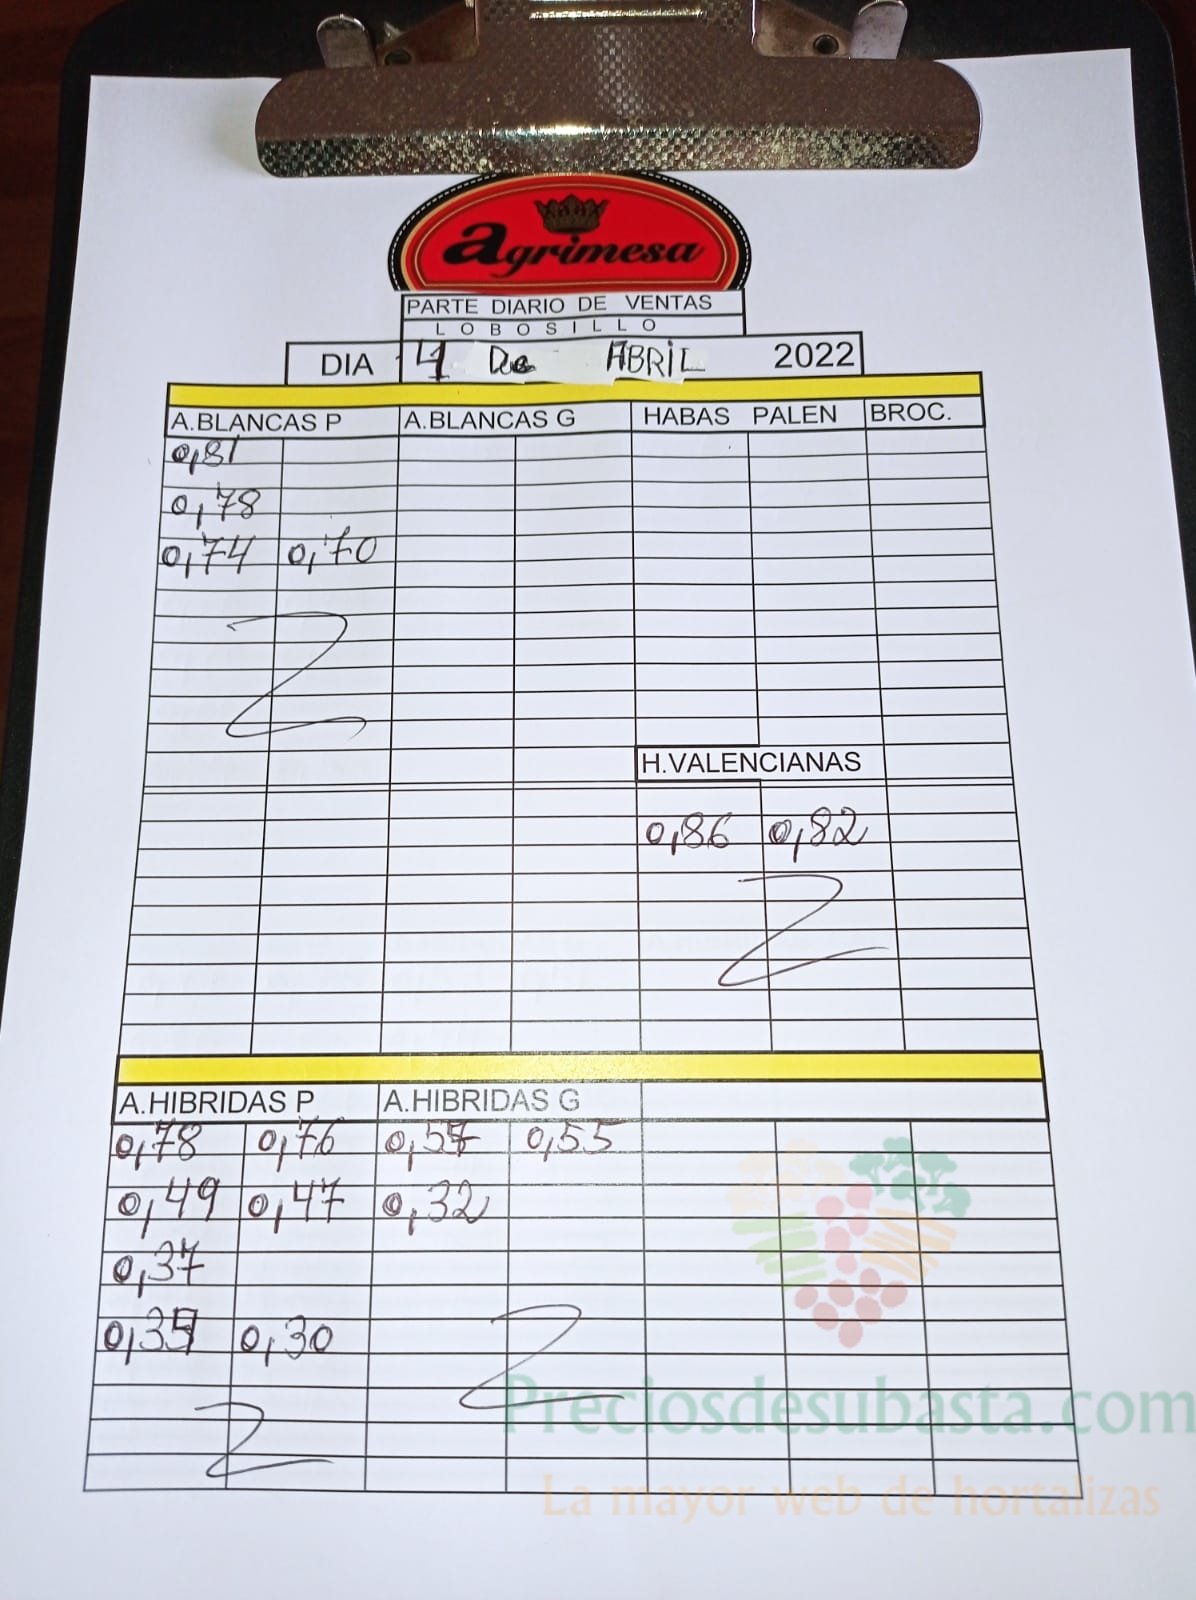 agrimesa
PARTE DIARIO DE VENTAS
LOBOSILLO
DIA 4 De ABRIL 2022
A.BLANCAS P A.BLANCAS G HABAS PALEN BROC.
0,81
0,78
0,74 0,70
H.VALENCIANAS
0,86 0,82
A.HIBRIDAS P A.HIBRIDAS G
0,78 0,76 0,57 0,55
0,49 0,47 0,32
0,37
0,30
Preciosdesubasta.com
La mayor web de hortalizas